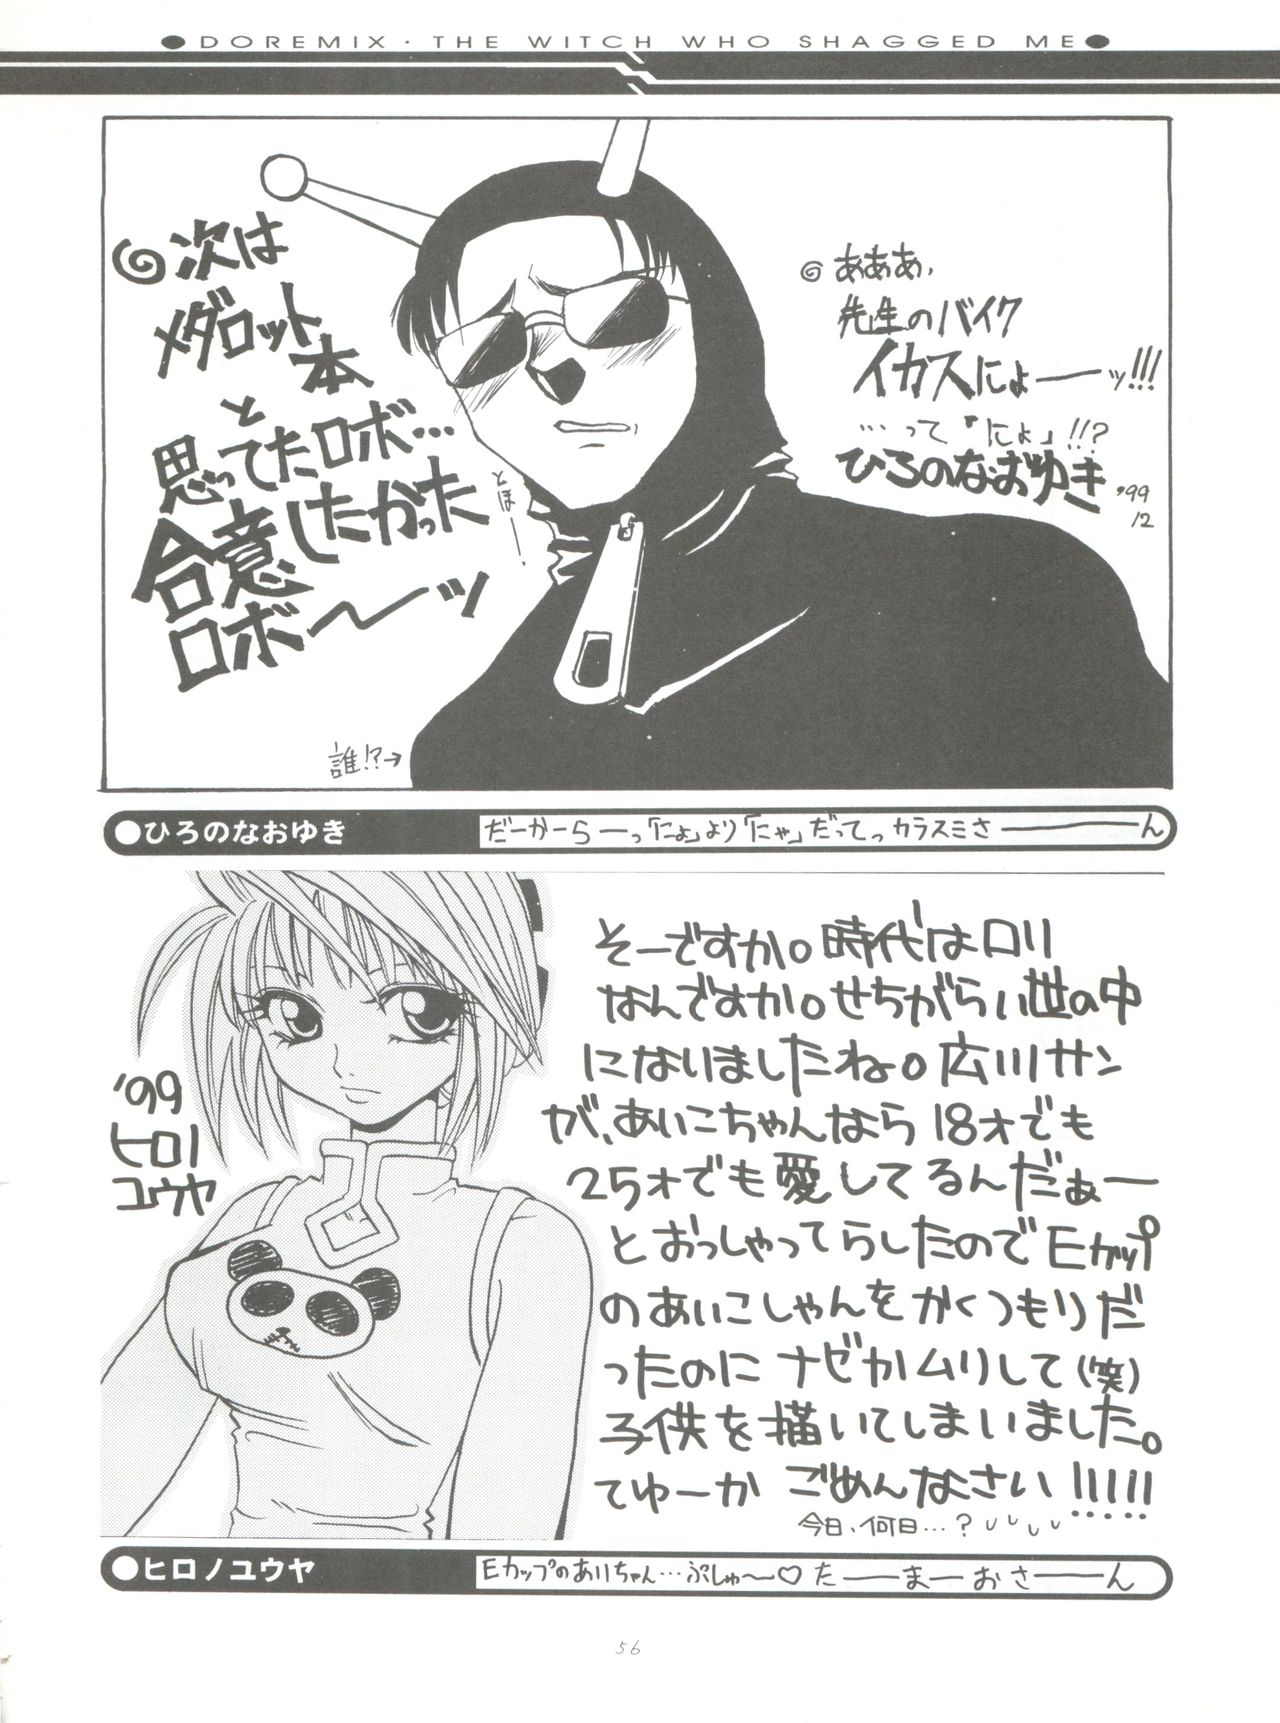 ●DOREMIX・THE WITCH WHO SHAGGED ME●
次は
メダロット
本
と
思ってたロボ…
合意したかった
ロボ〜ーッ
とほーー…
あああ、
先生のバイク
イカスにょーーッ!!!
…って「にょ」!!?
ひろのなおゆき
'99
12
誰!?→
●ひろのなおゆき
だーかーらーっ「にょ」より「にゃ」だってっカラスミさーーーん
そーですか。時代はロリ
なんですか。せちがらい世の中
になりましたね。広川サン
が、あいこちゃんなら18才でも
25才でも愛してるんだぁー
とおっしゃってらしたのでEカップ
のあいこしゃんをかくつもりだ
ったのにナゼかムリして(笑)
子供を描いてしまいました。
てゆーか ごめんなさい!!!!!
今日、何日…?
'99
ヒロノ
ユウヤ
●ヒロノユウヤ
Eカップのあいちゃん…ぷしゅ〜♡たーーまーおさーーん
56